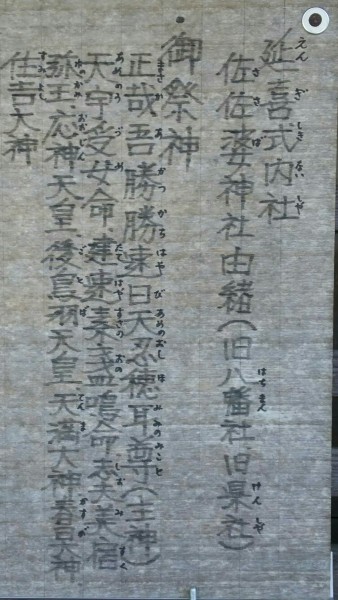 延喜式内社
佐佐婆神社由緒(旧八幡社旧県社)
御祭神
正哉吾勝勝速日天忍穂耳尊(主神)
天宇受女命、建速素戔嗚命、志夫美宿
祢王、応神天皇、後鳥羽天皇、天満大神、春日大神
住吉大神